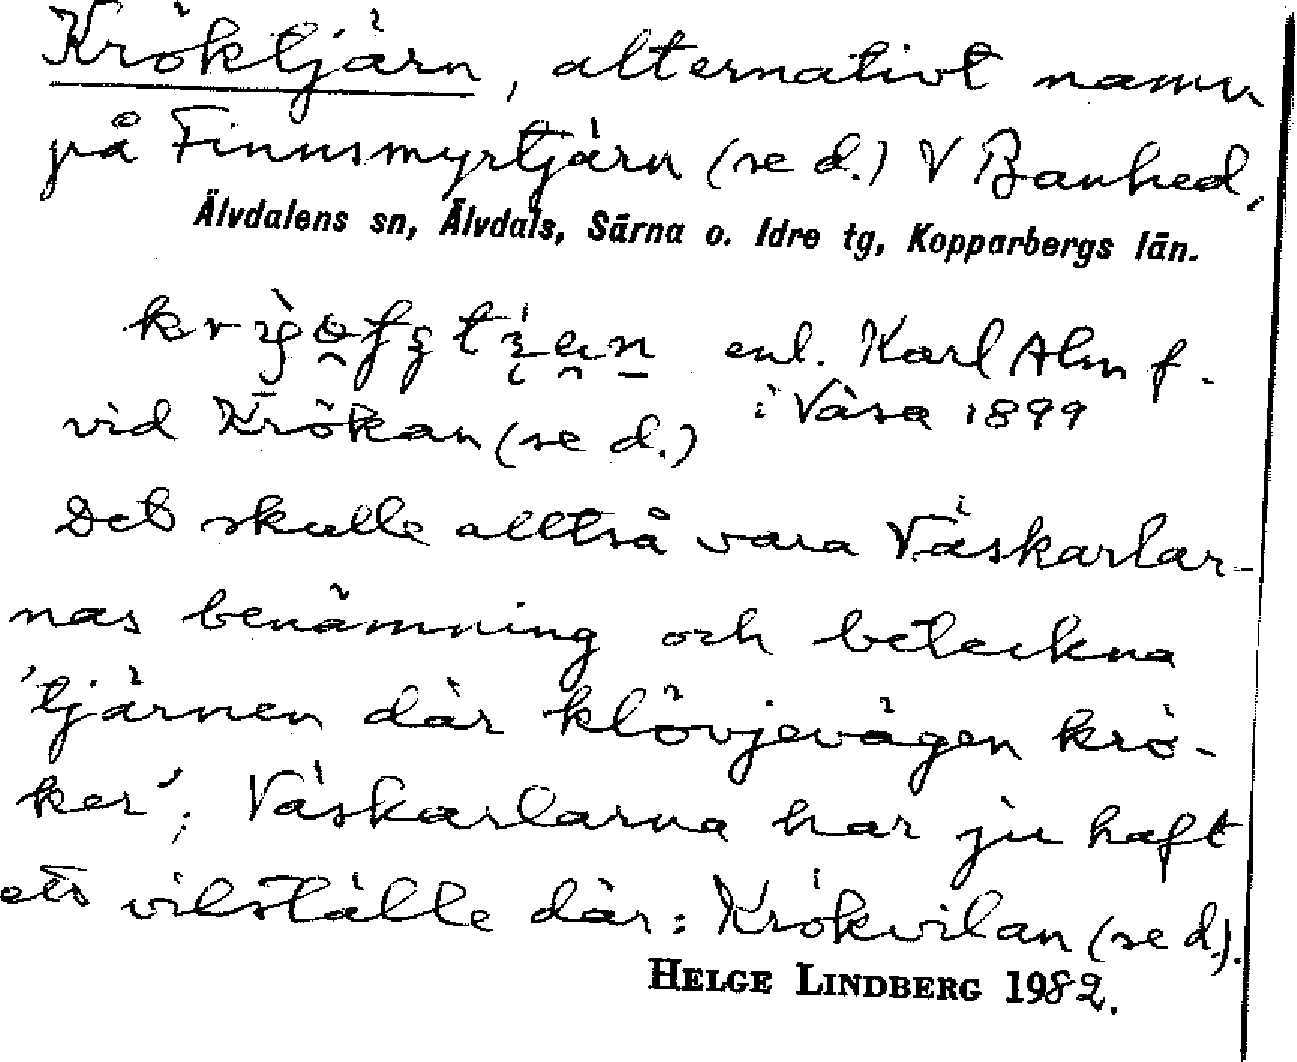 Kröktjärn, alternativt namn
på Finnsmyrtjärn (se d.) V Banhed,
Älvdalens sn, Älvdals, Särna o. Idre tg, Kopparbergs län.
enl. Karl Alm f.
i Våsa 1899
vid Krökan (se d.)
Det skulle alltså vara Våskarlar-
nas benämning och beteckna
'tjärnen där klövjevägen krö-
ker'; Våskarlarna har ju haft
ett vilställe där: Krökvilan (se d.).
HELGE LINDBERG 1982.